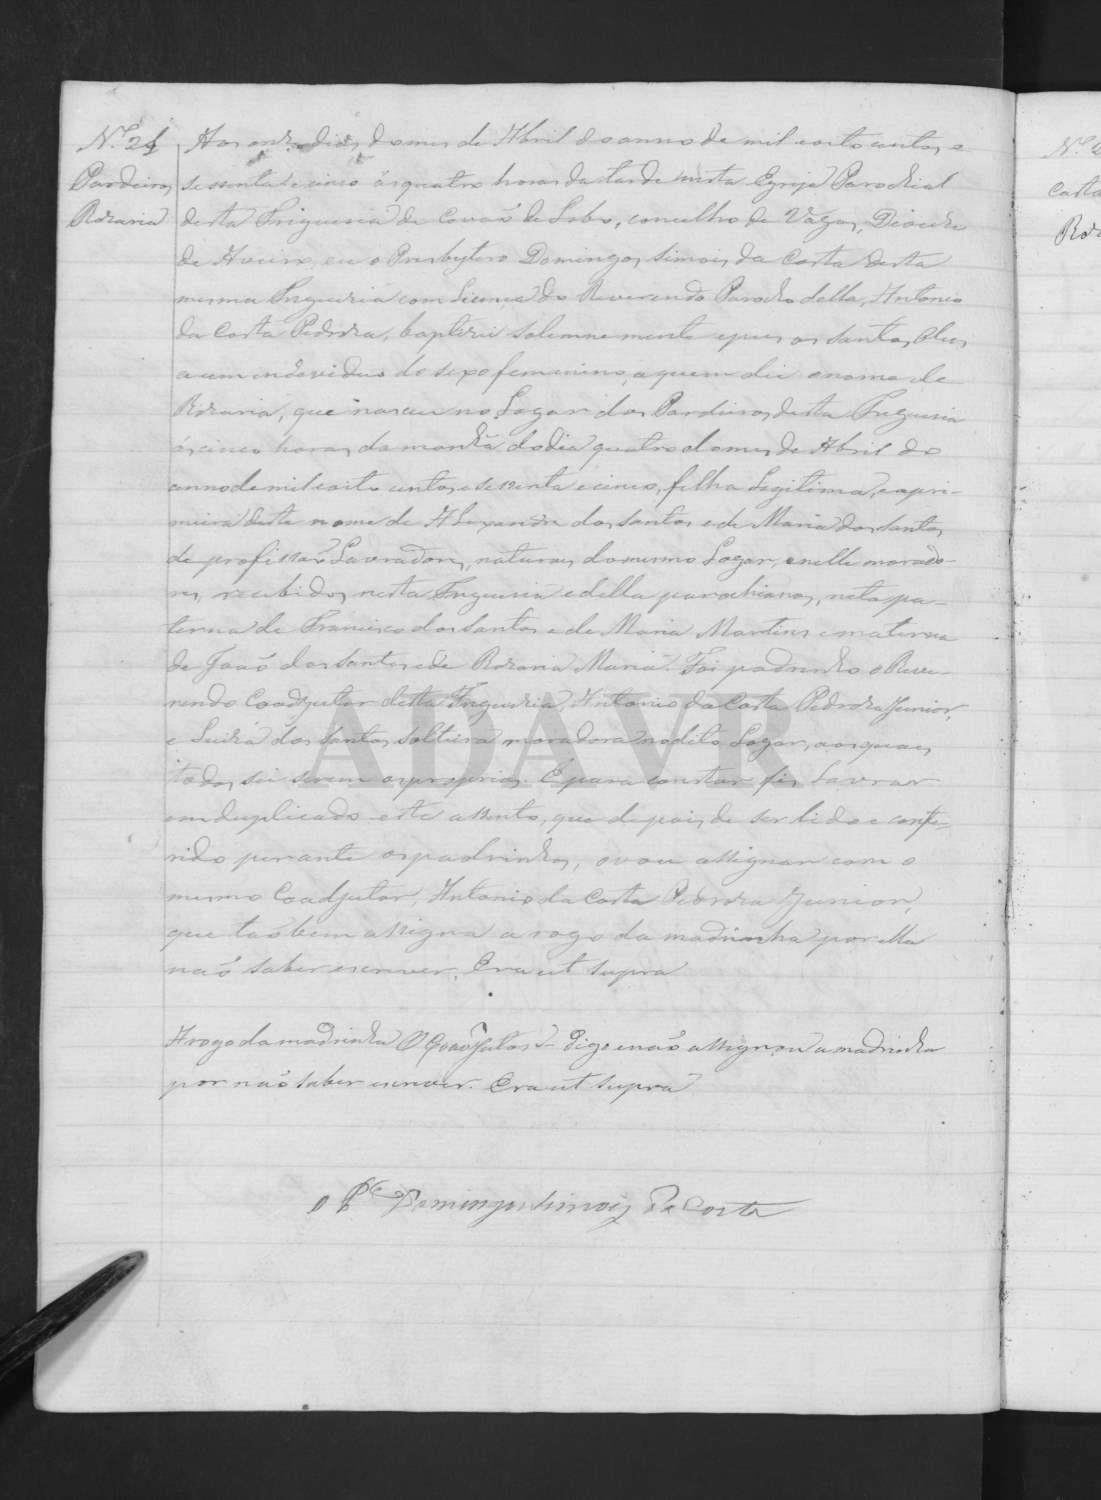 N.º 24
Pardeiros
Rozaria
Aos onze dias do mes de Abril do anno de mil e oito centos e
sessenta e cinco ás quatro horas da tarde nesta Egreja Parochial
desta Freguesia de Covaõ de Lobo, concelho de Vagos, Diocese
de Aveiro, eu o Presbytero Domingos Simois da Costa desta
mesma Freguesia com Licença do Reverendo Parocho della, Antonio
da Costa Pedroza, baptizei solemnemente e pus os Santos Oleos
a um individuo do sexo femenino, a quem dei o nome de
Rozaria, que nasceu no Logar dos Pardeiros desta Freguesia
ás cinco horas da manhã do dia quatro do mes de Abril do
anno de mil e oito centos e sessenta e cinco, filha Legitima, e a pri-
meira deste nome de Alexandre dos Santos e de Maria dos Santos,
de profissaõ Lavradores, naturaes do mesmo Logar, e nelle morado-
res, recebidos nesta Freguesia e della parochianos, neta pa-
terna de Francisco dos Santos e de Maria Martins e materna
de Joaõ dos Santos e de Rozaria Maria. Foi padrinho o Reve-
rendo Coadjutor desta Freguesia, Antonio da Costa Pedroza Junior,
e Luiza dos Santos, solteira moradora no dito Logar, aos quaes
todos sei serem os proprios. E para constar fis Lavrar
em duplicado este assento, que depois de ser lido e confe-
rido perante os padrinhos, o vou assignar com o
mesmo Coadjutor, Antonio da Costa Pedroza Junior,
que taõbem assigna a rogo da madrinha por ella
naõ saber escrever. Era ut supra
A rogo da madrinha O Coadjutor digo e naõ assignou a madrinha
por naõ saber escrever. Era ut supra
O P.e Domingos Simois da Costa
ADAVR
N.º
Costa
Roz